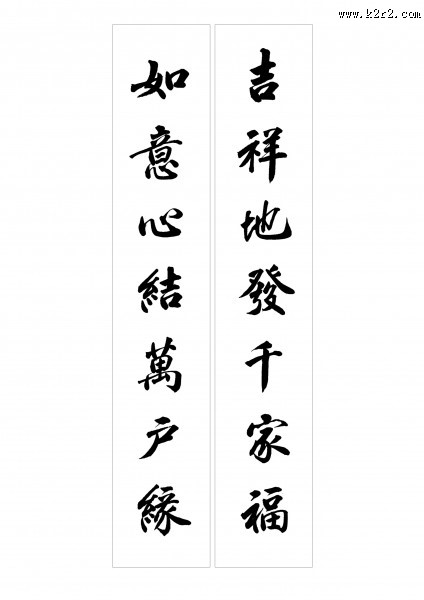 www.k2r2.com
吉祥地發千家福
如意心結萬戶緣